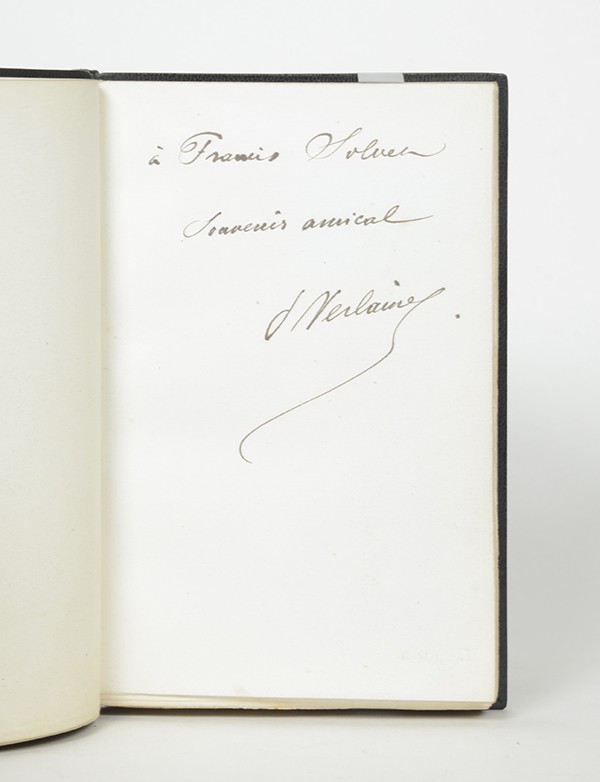 à Francis Solvet
Souvenir amical
P Verlaine.